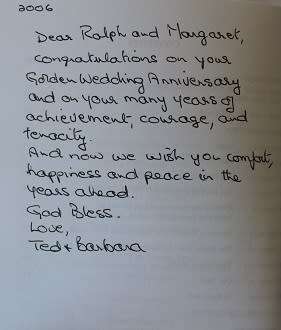 2006
Dear Ralph and Margaret,
congratulations on your
Golden Wedding Anniversary
and on your many years of
achievement, courage, and
tenacity.
And now we wish you comfort,
happiness and peace in the
years ahead.
God Bless.
Love,
Ted & Barbara